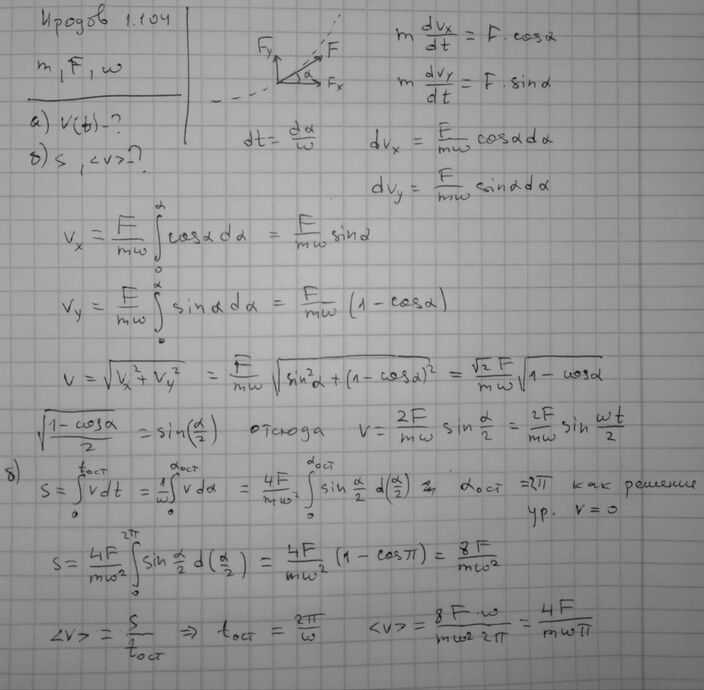 Иродов 1.104
m, F, w
а) v(t)-?
б) s, <v>-?
F_y F α F_x
m dv_x/dt = F·cosα
m dv_y/dt = F·sinα
dt = dα/w
dv_x = F/mw cosα dα
dv_y = F/mw sinα dα
v_x = F/mw ∫₀^α cosα dα = F/mw sinα
v_y = F/mw ∫₀^α sinα dα = F/mw (1 - cosα)
v = √(v_x² + v_y²) = F/mw √(sin²α + (1 - cosα)²) = √2 F/mw √(1 - cosα)
√((1 - cosα)/2) = sin(α/2) отсюда v = 2F/mw sin α/2 = 2F/mw sin wt/2
б) s = ∫₀^{t_ост} v dt = 1/w ∫₀^{α_ост} v dα = 4F/mw² ∫₀^{α_ост} sin α/2 d(α/2) α_ост = 2π как решение
ур. v = 0
s = 4F/mw² ∫₀^{2π} sin α/2 d(α/2) = 4F/mw² (1 - cosπ) = 8F/mw²
<v> = s/t_ост ⇒ t_ост = 2π/w <v> = 8F·w/mw² 2π = 4F/mwπ